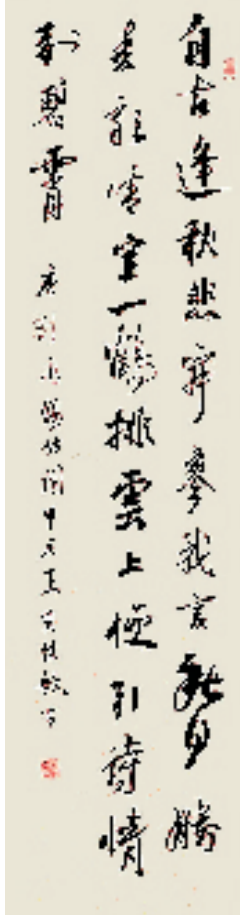 自古逢秋悲寂寥我言秋日勝
春朝晴空一鶴排雲上便引詩情
到碧霄 唐劉禹錫